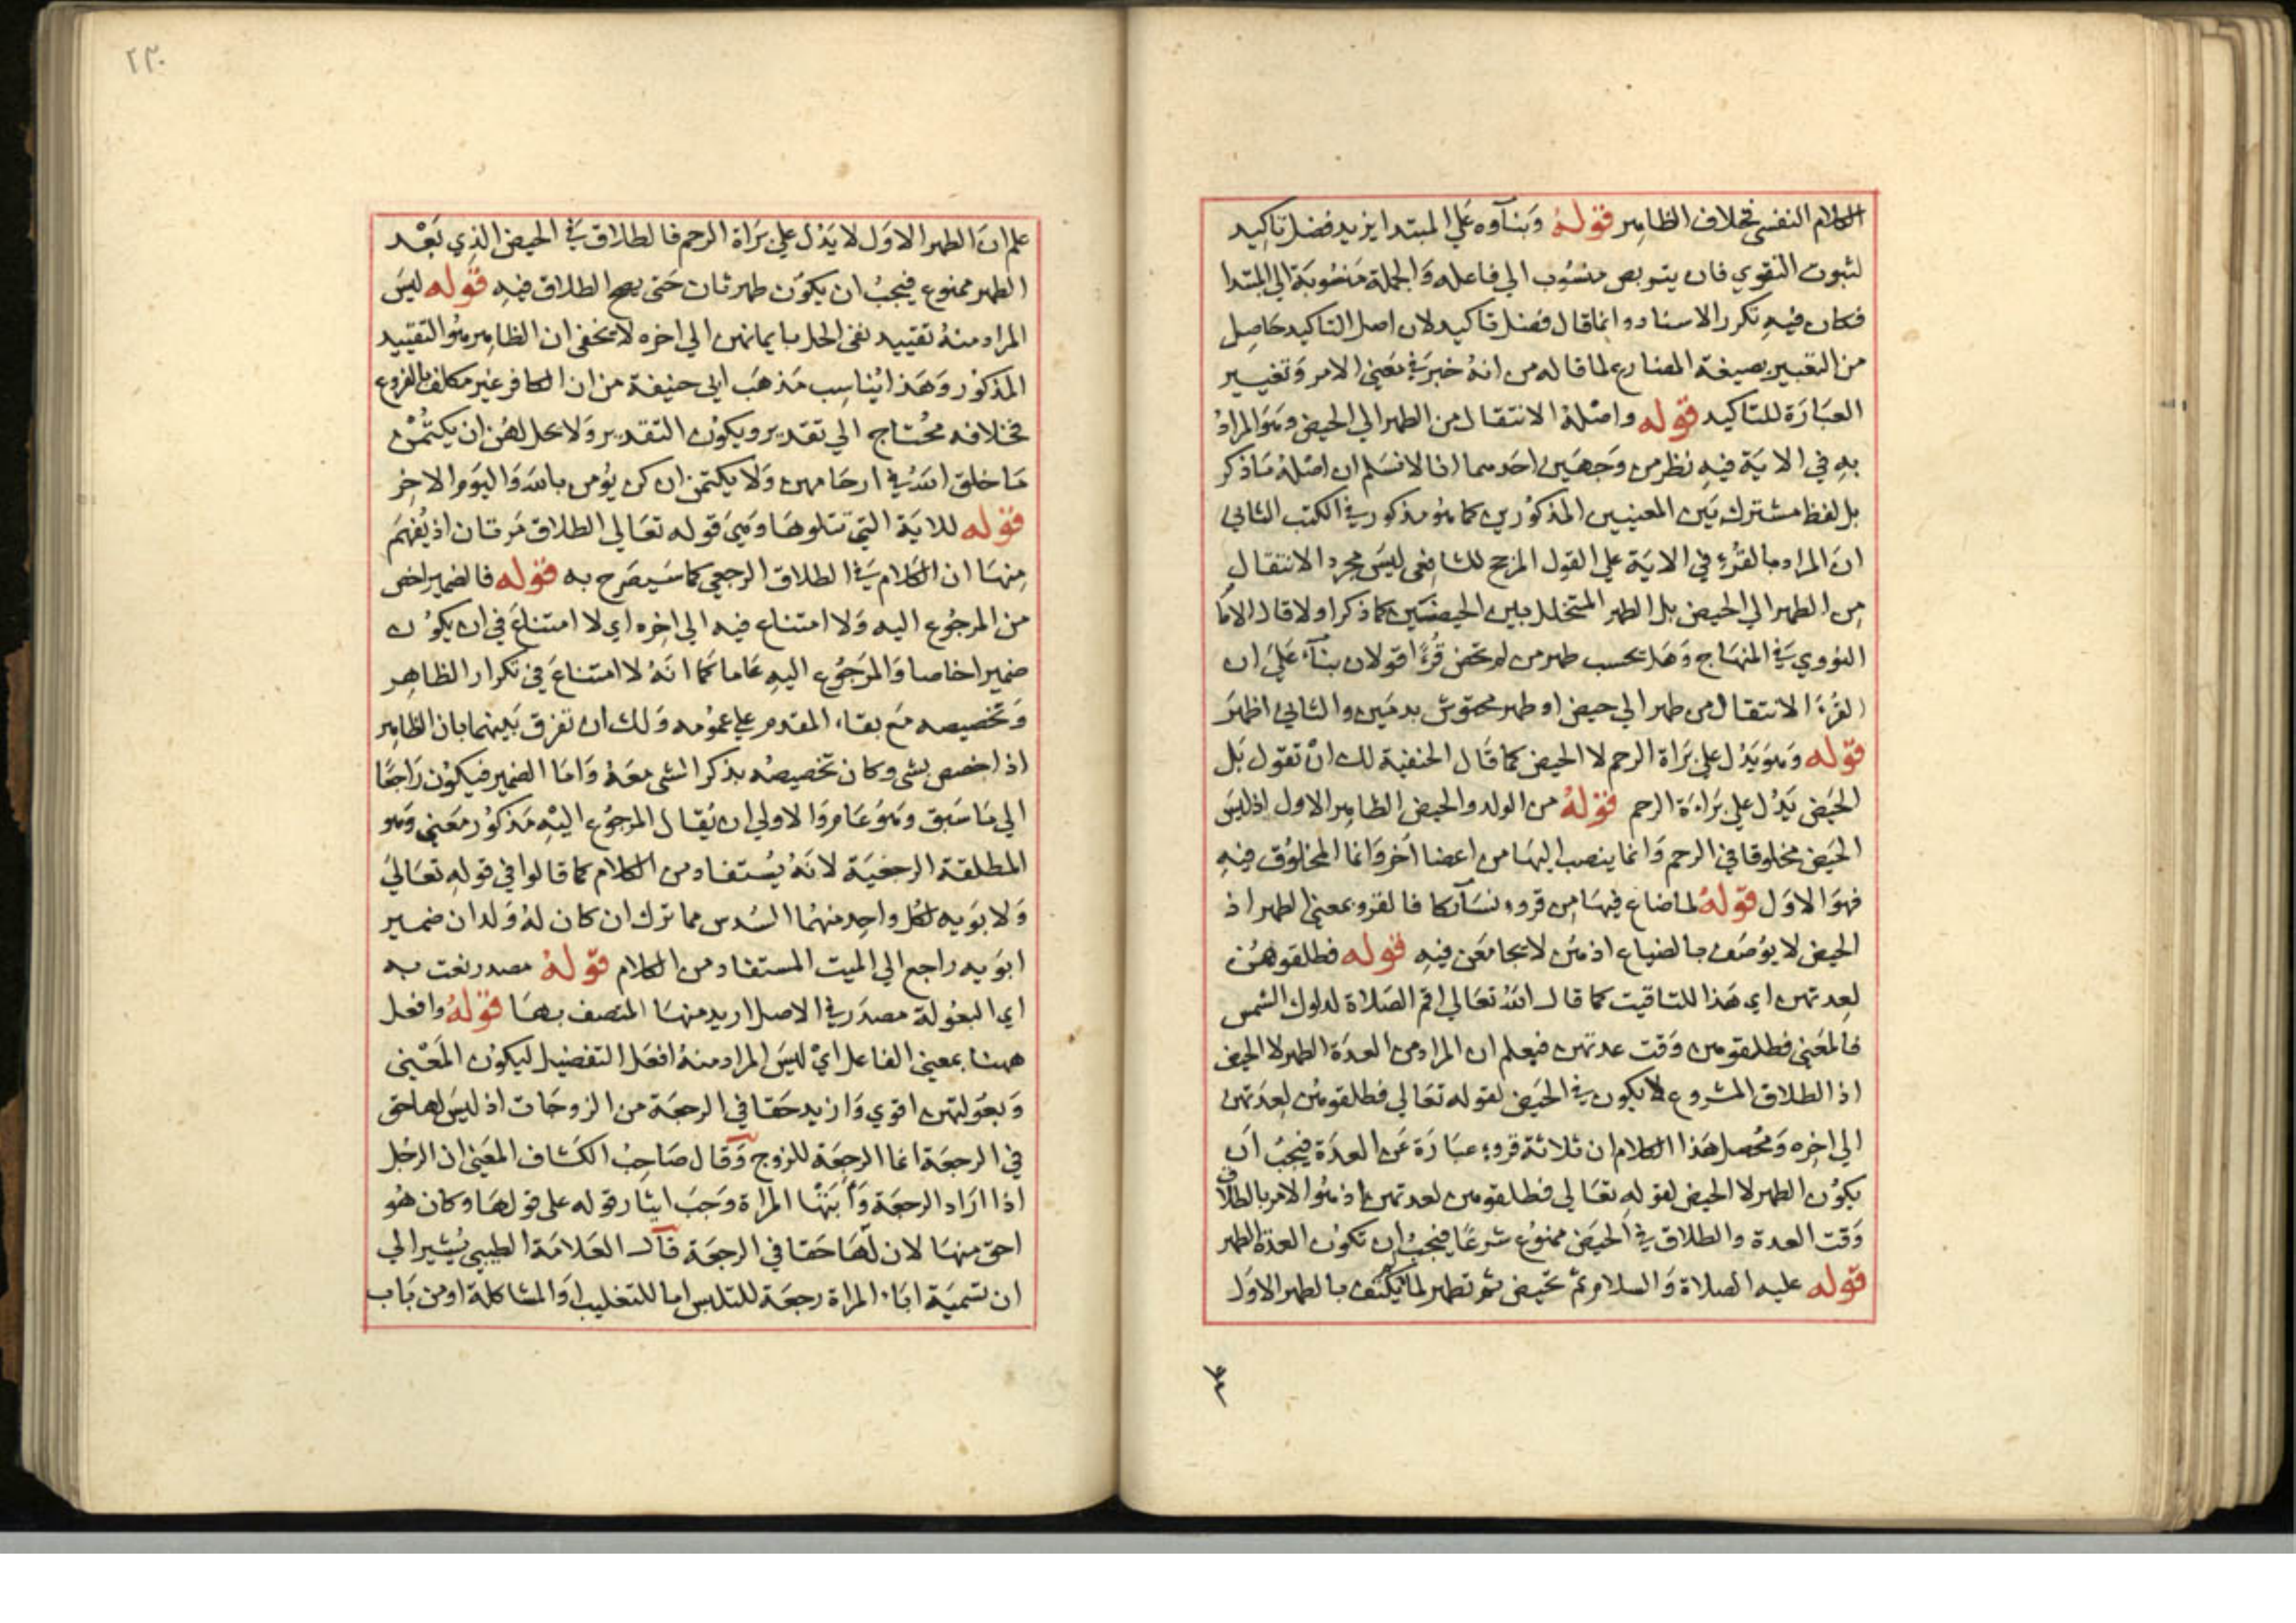 الكلام النفسى بخلاف الظاهر قوله وبناؤه علي المبتدا يزيد فضل تاكيد
لثبوت التقوي فان يتربص منسوب الي فاعله والجملة منسوبة الي المبتدا
فكان فيه تكرر الاسناد وانما قال فضل تاكيد لان اصل التاكيد حاصل
من التعبير بصيغة المضارع لما قاله من انه خبر في معني الامر وتغيير
العبارة للتاكيد قوله واصله الانتقال من الطهر الي الحيض وهو المراد
به في الاية فيه نظر من وجهين احدهما انا لا نسلم ان اصله ما ذكر
بل لفظ مشترك بين المعنيين المذكورين كما هو مذكور في الكتب الثاني
ان المراد بالقرء في الاية علي القول المرجح للشافعي ليس مجرد الانتقال
من الطهر الي الحيض بل الطهر المتخلل بين الحيضتين كما ذكر اولا قال الاما
النووي في المنهاج وهل يحسب طهر من لم تحض قرءا قولان بناء علي ان
القرء الانتقال من طهر الي حيض او طهر محتوش بدمين والثاني اظهر
قوله وهو يدل علي براة الرحم لا الحيض كما قال الحنفية لك ان تقول بل
الحيض يدل علي براءة الرحم قوله من الولد والحيض الظاهر الاول اذ ليس
الحيض مخلوقا في الرحم وانما ينصب اليها من اعضا اخر وانما المخلوق فيه
فهو الاول قوله لما ضاع فيها من قروء نسآئكا فالقرو بمعني الطهر اذ
الحيض لا يوصف بالضياع اذ هن لا يجامعن فيه قوله فطلقوهن
لعدتهن اي هذا للتاقيت كما قال الله تعالي اقم الصلاة لدلوك الشمس
فالمعني فطلقوهن وقت عدتهن فيعلم ان المراد من العدة الطهر لا الحيض
اذ الطلاق المشروع لا يكون في الحيض لقوله تعالي فطلقوهن لعدتهن
الي اخره ومحصل هذا الكلام ان ثلاثة قروء عبارة عن العدة فيجب ان
يكون الطهر لا الحيض لقوله تعالي فطلقوهن لعدتهن اذ هو الامر بالطلاق
وقت العدة والطلاق في الحيض ممنوع شرعا فيجب ان تكون العدة الطهر
قوله عليه الصلاة والسلام ثم تحيض ثم تطهر لما لم يكتف بالطهر الاول
علم
٢٣٠
علم ان الطهر الاول لا يدل علي براة الرحم فالطلاق في الحيض الذي بعد
الطهر ممنوع فيجب ان يكون طهر ثان حتي يصح الطلاق فيه قوله ليس
المراد منه تقييد نفي الحل بايمانهن الي اخره لا يخفي ان الظاهر هو التقييد
المذكور وهذا يناسب مذهب ابي حنيفة من ان الكافر غير مكلف بالفروع
بخلافه محتاج الي تقدير ويكون التقدير ولا يحل لهن ان يكتمن
ما خلق الله في ارحامهن ولا يكتمن ان كن يومن بالله واليوم الاخر
قوله للاية التي تتلوها وهي قوله تعالي الطلاق مرتان اذ يفهم
منها ان الكلام في الطلاق الرجعي كما سيصرح به قوله فالضمير اخص
من المرجوع اليه ولا امتناع فيه الي اخره اي لا امتناع في ان يكون
ضميرا خاصا والمرجوع اليه عاما كما انه لا امتناع في تكرار الظاهر
وتخصيصه مع بقاء المقدم علي عمومه ولك ان تفرق بينهما بان الظاهر
اذا خصص بشي وكان تخصيصه بذكر الشي معه واما الضمير فيكون راجعا
الي ما سبق وهو عام والاولي ان يقال المرجوع اليه مذكور معني وهو
المطلقة الرجعية لانه يستفاد من الكلام كما قالوا في قوله تعالي
ولابويه لكل واحد منهما السدس مما ترك ان كان له ولد ان ضمير
ابويه راجع الي الميت المستفاد من الكلام قوله مصدر نعت به
اي البعولة مصدر في الاصل اريد منها المتصف بها قوله وافعل
ههنا بمعني الفاعل اي ليس المراد منه افعل التفضيل ليكون المعني
وبعولتهن اقوي وازيد حقا في الرجعة من الزوجات اذ ليس لها حق
في الرجعة انما الرجعة للزوج وقال صاحب الكشاف المعني ان الرجل
اذا اراد الرجعة وأبتها المراة وجب ايثار قوله على قولها وكان هو
احق منها لان لها حقا في الرجعة قال العلامة الطيبي يشير الي
ان تسمية اباء المراة رجعة للتلبس اما للتغليب او المشاكلة او من باب